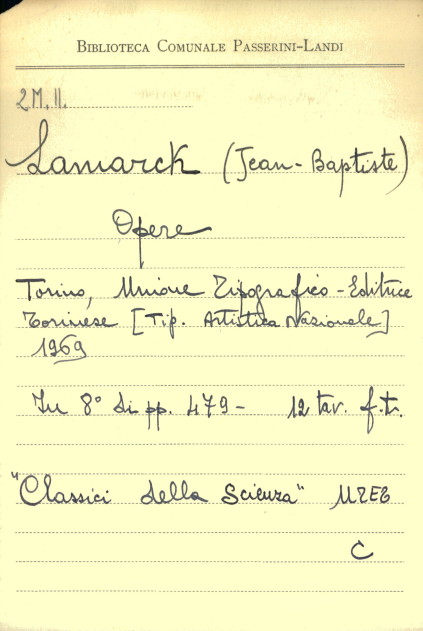 BIBLIOTECA COMUNALE PASSERINI-LANDI
2M.II.
Lamarck (Jean-Baptiste)
Opere
Torino, Unione Tipografico-Editrice
Torinese [Tip. Artistica Nazionale]
1969
In 8° di pp. 479- 12 tav. f.t.
"Classici della Scienza" UTET
C